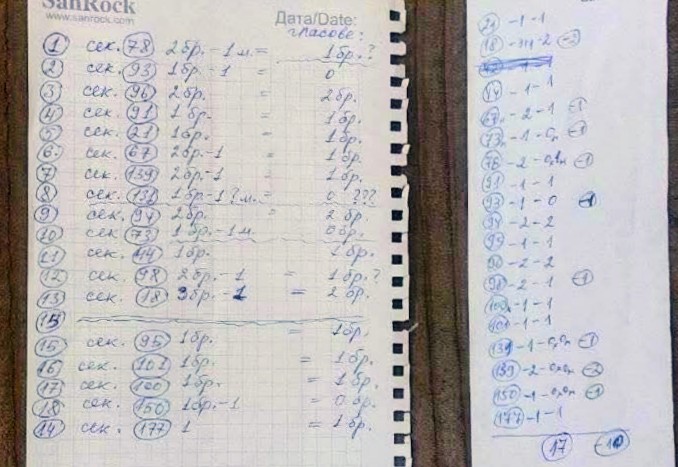 SanRock
www.sanrock.com
Дата/Date:
гласове:
1 сек. 78 2бр. - 1м. = 1бр.?
2 сек. 93 1бр. - 1 = 0
3 сек. 96 2бр. = 2бр.
4 сек. 91 1бр. = 1бр.
5 сек. 21 1бр. = 1бр.
6. сек. 67 2бр. - 1 = 1бр.
7 сек. 139 2бр. - 1 = 1бр.
8 сек. 131 1бр. - 1?м. = 0 ???
9 сек. 94 2бр. = 2 бр.
10 сек. 73 1бр. - 1м. 0бр.
11 сек. 44 1бр. 1бр.
12 сек. 98 2бр. - 1 = 1бр.?
13 сек. 18 3бр. - 1 = 2бр.
15
15 сек. 95 1бр. = 1бр.
16 сек. 101 1бр. = 1бр.
17 сек. 100 1бр. = 1бр.
18 сек. 150 1бр. - 1 = 0 бр.
14 сек. 177 1 = 1бр.
21 - 1 - 1
18 - 2 -2
44 - 1 - 1
67 - 2 - 1 -1
73 - 1 - -1
78 - 2 - -1
91 - 1 - 1
93 - 1 - 0 -1
94 - 2 - 2
95 - 1 - 1
96 - 2 - 2
98 - 2 - 1 -1
100 - 1 - 1
101 - 1 - 1
131 - 1 - -1
139 - 2 - -2
150 - 1 - -1
177 - 1 - 1
17 -10